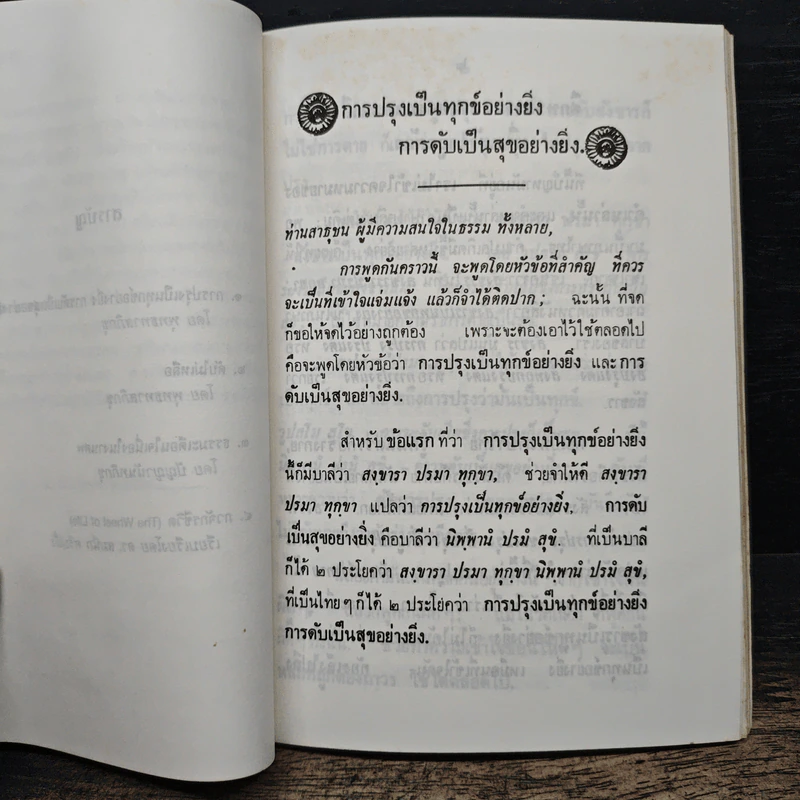 การปรุงเป็นทุกข์อย่างยิ่ง
การดับเป็นสุขอย่างยิ่ง.
ท่านสาธุชน ผู้มีความสนใจในธรรม ทั้งหลาย,
การพูดกันคราวนี้ จะพูดโดยหัวข้อที่สำคัญ ที่ควร
จะเป็นที่เข้าใจแจ่มแจ้ง แล้วก็จำได้ติดปาก ; ฉะนั้น ที่จด
ก็ขอให้จดไว้อย่างถูกต้อง เพราะจะต้องเอาไว้ใช้ตลอดไป
คือจะพูดโดยหัวข้อว่า การปรุงเป็นทุกข์อย่างยิ่ง และ การ
ดับเป็นสุขอย่างยิ่ง.
สำหรับ ข้อแรก ที่ว่า การปรุงเป็นทุกข์อย่างยิ่ง
นี้ก็มีบาลีว่า สงฺขารา ปรมา ทุกฺขา, ช่วยจำให้ดี สงฺขารา
ปรมา ทุกฺขา แปลว่า การปรุงเป็นทุกข์อย่างยิ่ง, การดับ
เป็นสุขอย่างยิ่ง คือบาลีว่า นิพฺพานํ ปรมํ สุขํ. ที่เป็นบาลี
ก็ได้ ๒ ประโยคว่า สงฺขารา ปรมา ทุกฺขา นิพฺพานํ ปรมํ สุขํ,
ที่เป็นไทย ๆ ก็ได้ ๒ ประโยคว่า การปรุงเป็นทุกข์อย่างยิ่ง
การดับเป็นสุขอย่างยิ่ง.